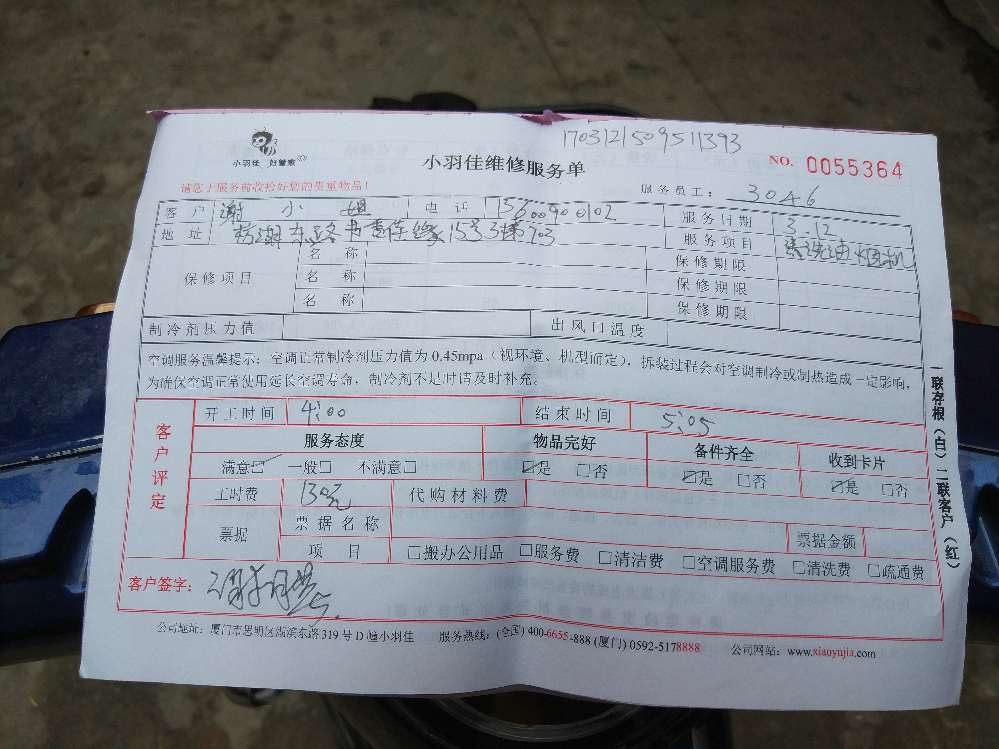 1703121509511393
小羽佳 好管家
小羽佳维修服务单
NO. 0055364
请您于服务前收拾好您的贵重物品！
服务员工： 3046
客户 谢小姐 电话 15600900102 服务日期 3.12
地址 东路 15号 703 服务项目 清洗油烟机
保修项目 名称 保修期限
名称 保修期限
名称 保修期限
制冷剂压力值 出风口温度
空调服务温馨提示：空调正常制冷剂压力值为 0.45mpa（视环境、机型而定），拆装过程会对空调制冷或制热造成一定影响，
为确保空调正常使用延长空调寿命，制冷剂不足时请及时补充。
客户评定
开工时间 4:00 结束时间 5:05
服务态度 物品完好 备件齐全 收到卡片
满意☑ 一般□ 不满意□ ☑是 □否 ☑是 □否 ☑是 □否
工时费 130元 代购材料费
票据 票据名称 票据金额
项目 □搬办公用品 □服务费 □清洁费 □空调服务费 □清洗费 □疏通费
客户签字：
公司地址：厦门市思明区湖滨东路 319 号 D 幢小羽佳 服务热线：(全国) 400-6655-888 (厦门) 0592-5178888 公司网站：www.xiaoyujia.com
一联存根（白）二联客户（红）